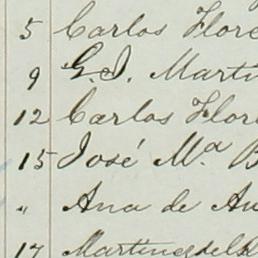 5 Carlos Flore
9 G. J. Marti
12 Carlos Flor
15 José Mª B
" Ana de Au
17 Martinez del R